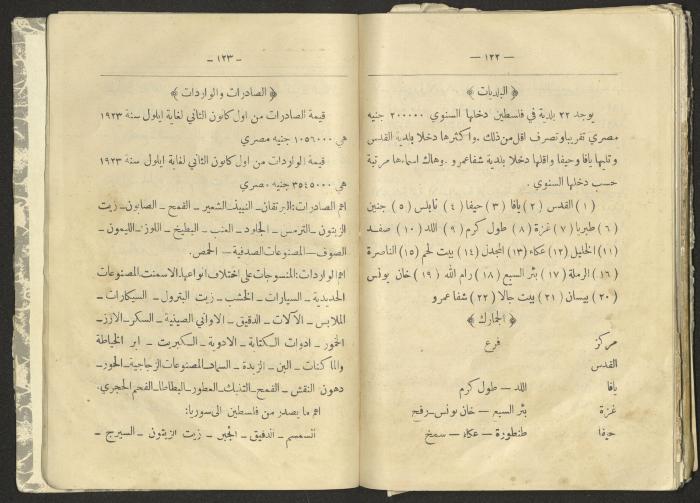 — ١٢٢ —
﴿ البلديات ﴾
يوجد ٢٢ بلدية في فلسطين دخلها السنوي ٢٠٠٠٠٠ جنيه
مصري تقريبا وتصرف اقل من ذلك . واكثرها دخلا بلدية القدس
وتليها يافا وحيفا واقلها دخلا بلدية شفاعمرو . وهاك اسماءها مرتبة
حسب دخلها السنوي .
(١) القدس (٢) يافا (٣) حيفا (٤) نابلس (٥) جنين
(٦) طبريا (٧) غزة (٨) طول كرم (٩) اللد (١٠) صفد
(١١) الخليل (١٢) عكاء (١٣) المجدل (١٤) بيت لحم (١٥) الناصرة
(١٦) الرملة (١٧) بئر السبع (١٨) رام الله (١٩) خان يونس
(٢٠) بيسان (٢١) بيت جالا (٢٢) شفاعمرو
﴿ الجمارك ﴾
مركز فرع
القدس
يافا اللد — طول كرم
غزة بئر السبع — خان يونس — رفح
حيفا طنطورة — عكاء — سمخ
— ١٢٣ —
﴿ الصادرات والواردات ﴾
قيمة الصادرات من اول كانون الثاني لغاية ايلول سنة ١٩٢٣
هي ١٠٥٦٠٠٠ جنيه مصري
قيمة الواردات من اول كانون الثاني لغاية ايلول سنة ١٩٢٣
هي ٣٥٤٥٠٠٠ جنيه مصري
اهم الصادرات : البرتقان ــ النبيذ ــ الشعير ــ القمح ــ الصابون ــ زيت
الزيتون ــ الترمس ــ الجلود ــ العنب ــ البطيخ ــ اللوز ــ الليمون ــ
الصوف — المصنوعات الصدفية — الحمص .
اهم الواردات : المنسوجات على اختلاف انواعها . الاسمنت . المصنوعات
الحديدية ــ السيارات ــ الخشب ــ زيت البترول ــ السيكارات ــ
الملابس ــ الآلات ــ الدقيق ــ الاواني الصينية ــ السكر ــ الارز ــ
الخمور ــ ادوات الكتابة ــ الادوية ــ الكبريت ــ ابر الخياطة
والماكنات ــ البن ــ الزبدة ــ السماد ــ المصنوعات الزجاجية ــ الخور ــ
دهون النقش ــ القمح ــ التنباك ــ العطور ــ البطاطا ــ الفحم الحجري .
اهم ما يصدر من فلسطين الى سوريا :
السمسم ــ الدقيق ــ الجبر ــ زيت الزيتون ــ السيرج ــ